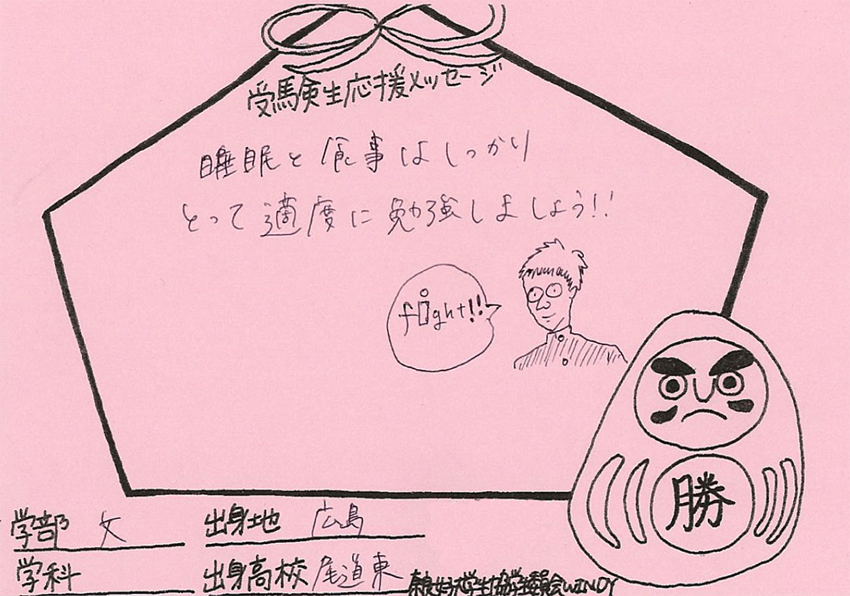 受験生応援メッセージ
睡眠と食事はしっかり
とって適度に勉強しましょう!!
fight!!
勝
学部 文
出身地 広島
学科
出身高校 尾道東
WINDY